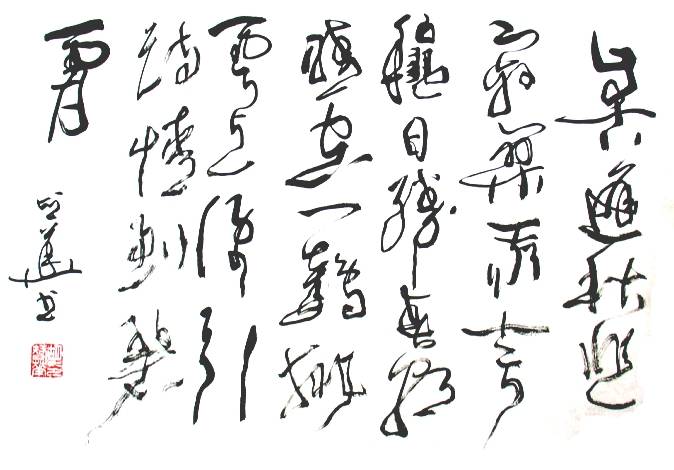 自古逢秋悲
寂寥我言
秋日勝春朝
晴空一鶴排
雲上便引
詩情到碧
霄
书